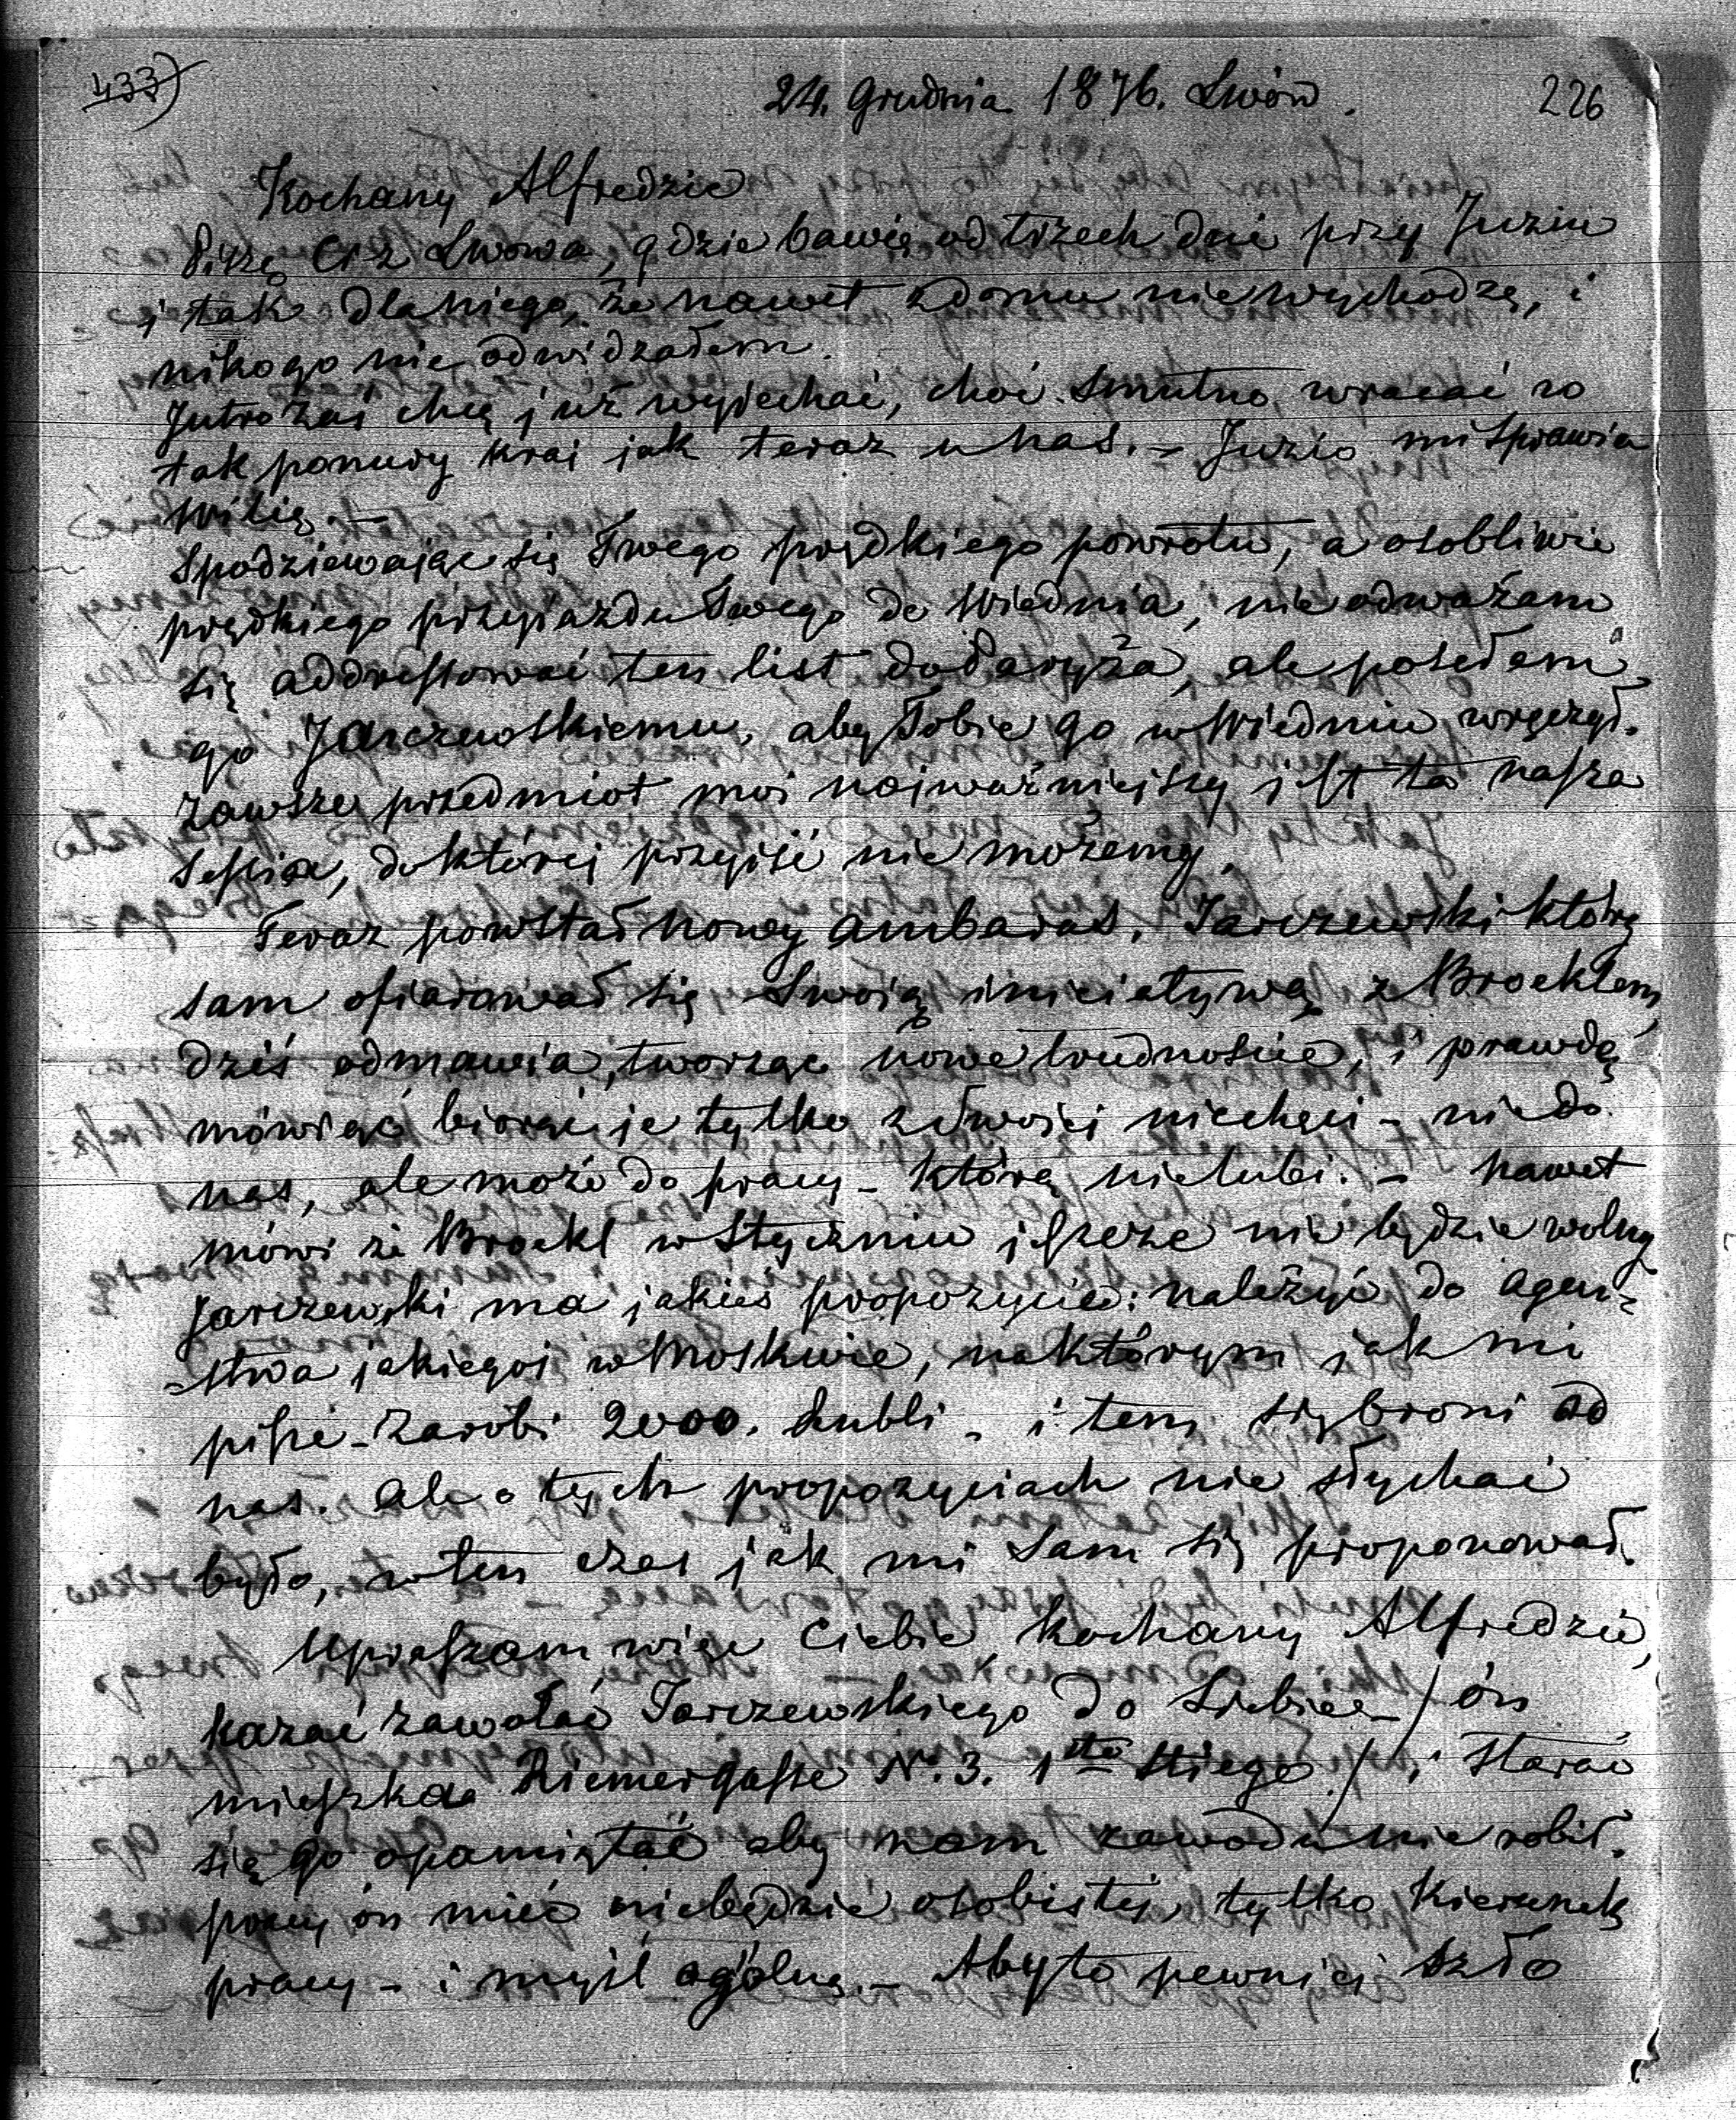 433)
24. Grudnia 1876. Lwów.
226
Kochany Alfredzie
Piszę Ci z Lwowa, gdzie bawię od trzech dni przy Juziu
i tak dla niego, że nawet z domu nie wychodzę, i
nikogo nie odwidzałem.
Jutro zaś chcę już wyjechać, choć smutno wracać w
tak ponury kraj jak teraz u nas. – Juzio mi sprawia
Wilią. –
Spodziewając się Twego prędkiego powrotu, a osobliwie
prędkiego przyjazdu Twego do Wiednia, nie odważam
się addressować ten list do Paryża, ale posełam
go Jarczewskiemu, aby Tobie go w Wiedniu wręczył.
Zawsze przedmiot mój najważniejszy jest ta nasza
Sessia, do której przyjść nie możemy.
Teraz powstał nowy ambaras. Jarczewski który
sam ofiarował się swoią iniciatywą z Brocklem,
dziś odmawia, tworząc nowe trudnoście, i prawdę
mówiąc biorąc je tylko z swojej niechęci – nie do
nas, ale może do pracy – którą nie lubi. – nawet
mówi że Brockl w Styczniu jeszcze nie będzie wolny
Jarczewski ma jakieś propozycie: należyć do agen=
=stwa jakiegoś w Moskwie, na którym jak mi
pisze – zarobi 2000. Rubli – i tem się broni od
nas. ale o tych propozyciach nie słychać
było, w ten czas jak mi sam się proponował.
Upraszam więc Ciebie kochany Alfredzie,
kazać zawołać Jarczewskiego do Siebie – / ón
mieszka Riemergasse N. 3. 1te Stiege / i starać
się go opamiętać aby nam zawodu nie robił.
pracy ón mieć nie będzie osobistej, tylko kierunek
pracy – i myśl ogólną. – Aby to pewniej szło